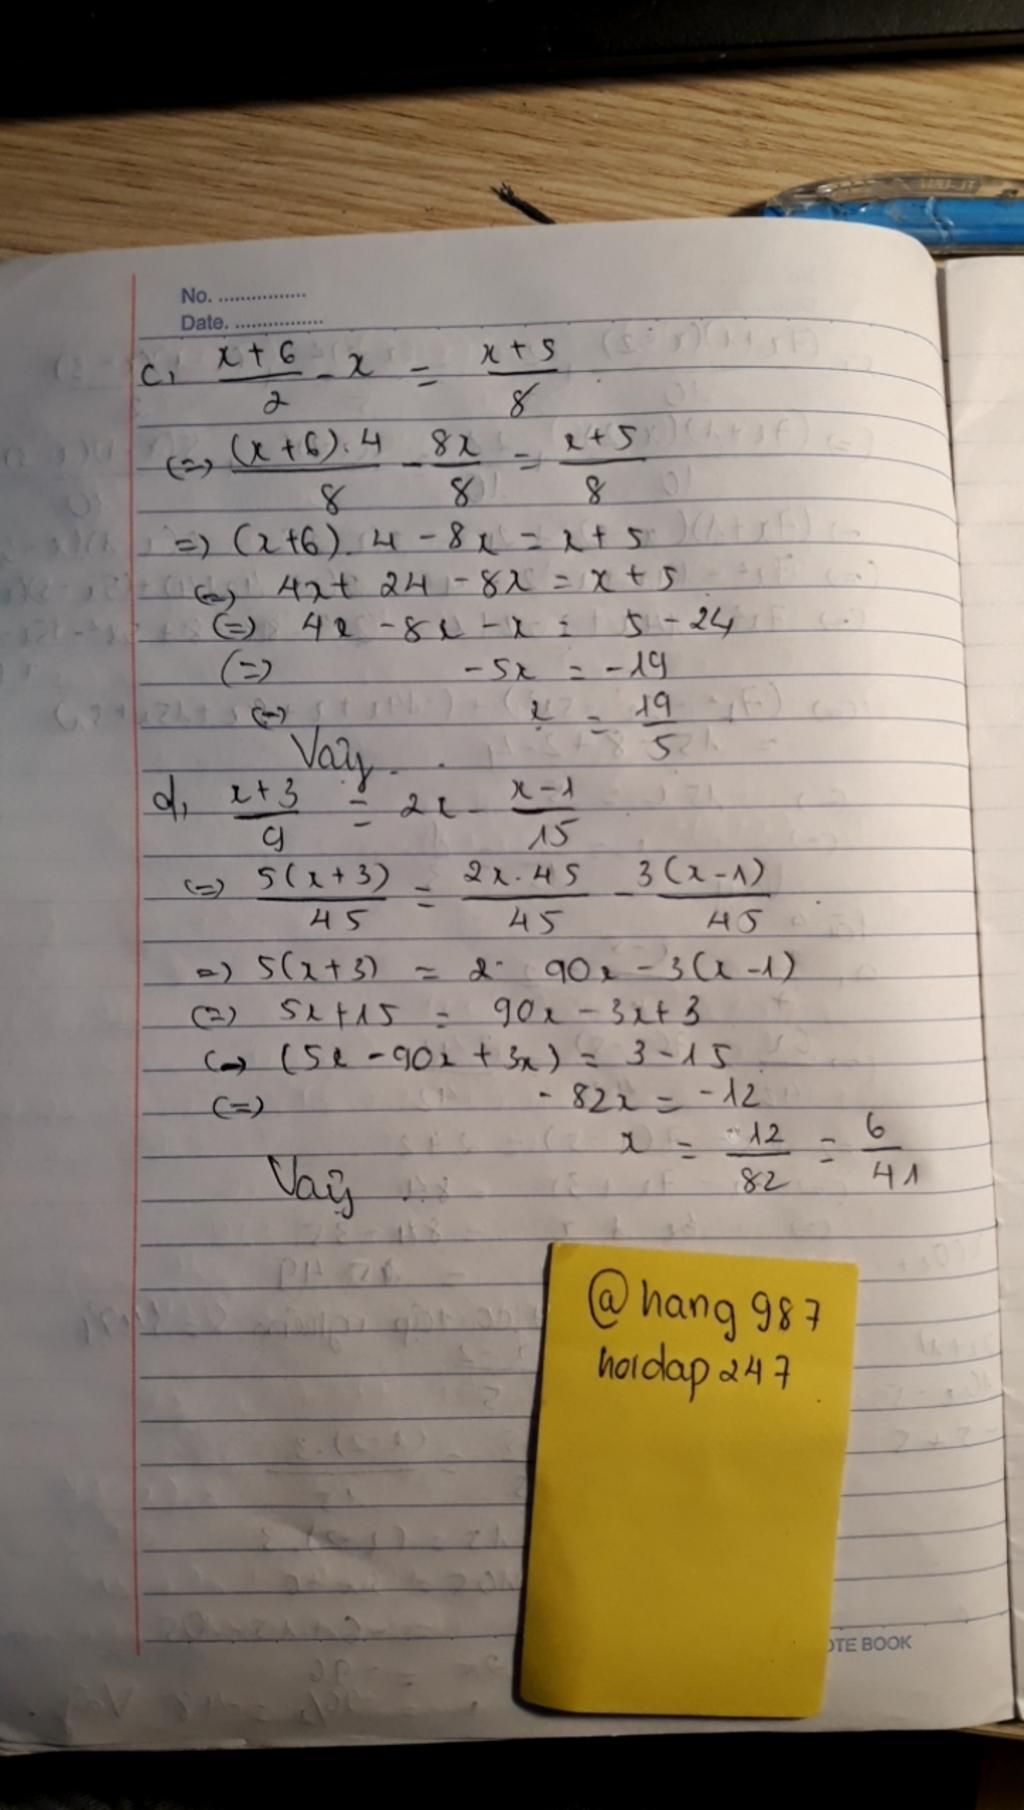 No. ................
Date. ................
c, (x+6)/2 - x = (x+5)/8
(=) (x+6).4/8 - 8x/8 = (x+5)/8
=) (x+6).4 - 8x = x+5
(=) 4x + 24 - 8x = x+5
(=) 4x - 8x - x = 5 - 24
(=) -5x = -19
(=) x = 19/5
Vậy . .
d, (x+3)/9 = 2x - (x-1)/15
(=) 5(x+3)/45 = 2x.45/45 - 3(x-1)/45
=) 5(x+3) = 2. 90x - 3(x-1)
(=) 5x+15 = 90x - 3x+3
(=) (5x - 90x + 3x) = 3 - 15
(=) -82x = -12
x = 12/82 = 6/41
Vậy
@hang987
hoidap247
OTE BOOK